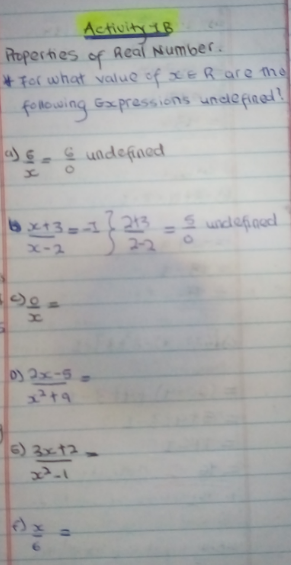 Activity 1B
Properties of Real Number.
* For what value of x ∈ R are the
following Expressions undefined?
a) 6/x = 6/0 undefined
b) x+3/x-2 = -1 } 2+3/2-2 = 5/0 undefined
c) 0/x =
D) 2x-5/x²+9 =
E) 3x+2/x²-1 =
F) x/6 =